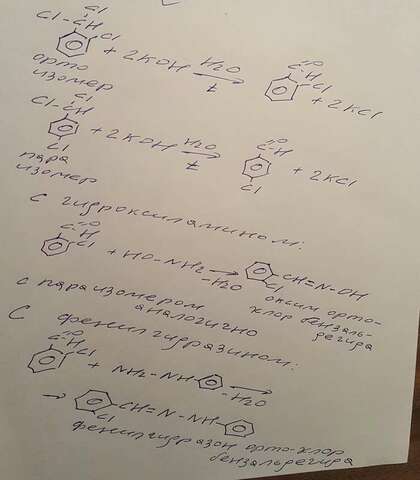 Cl
Cl-CH Cl
+ 2KOH H2O t C=O H Cl + 2KCl
орто
изомер
Cl
Cl-CH
+ 2KOH H2O t C=O H + 2KCl
Cl Cl
пара
изомер
с гидроксиламином:
C=O H Cl + HO-NH2 → -H2O CH=N-OH Cl
оксим орто-
хлор бензаль-
дегида
с параизомером
аналогично
С фенилгидразином:
C=O H Cl
+ NH2-NH → -H2O
→ CH=N-NH
Cl
фенилгидразон орто-хлор
бензальдегида